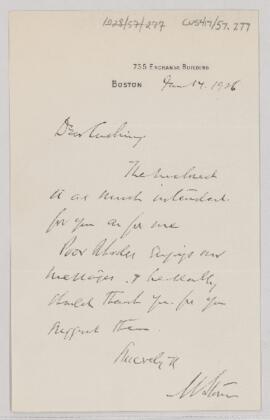 1028/57/277 CUS417/57.277
735 EXCHANGE BUILDING
BOSTON Jan 14. 1926
Dear Cushing
The enclosed
is as much intended
for you as for me
Poor Rhodes enjoys our
messages. & he really
should thank you for you
suggest them.
Sincerely